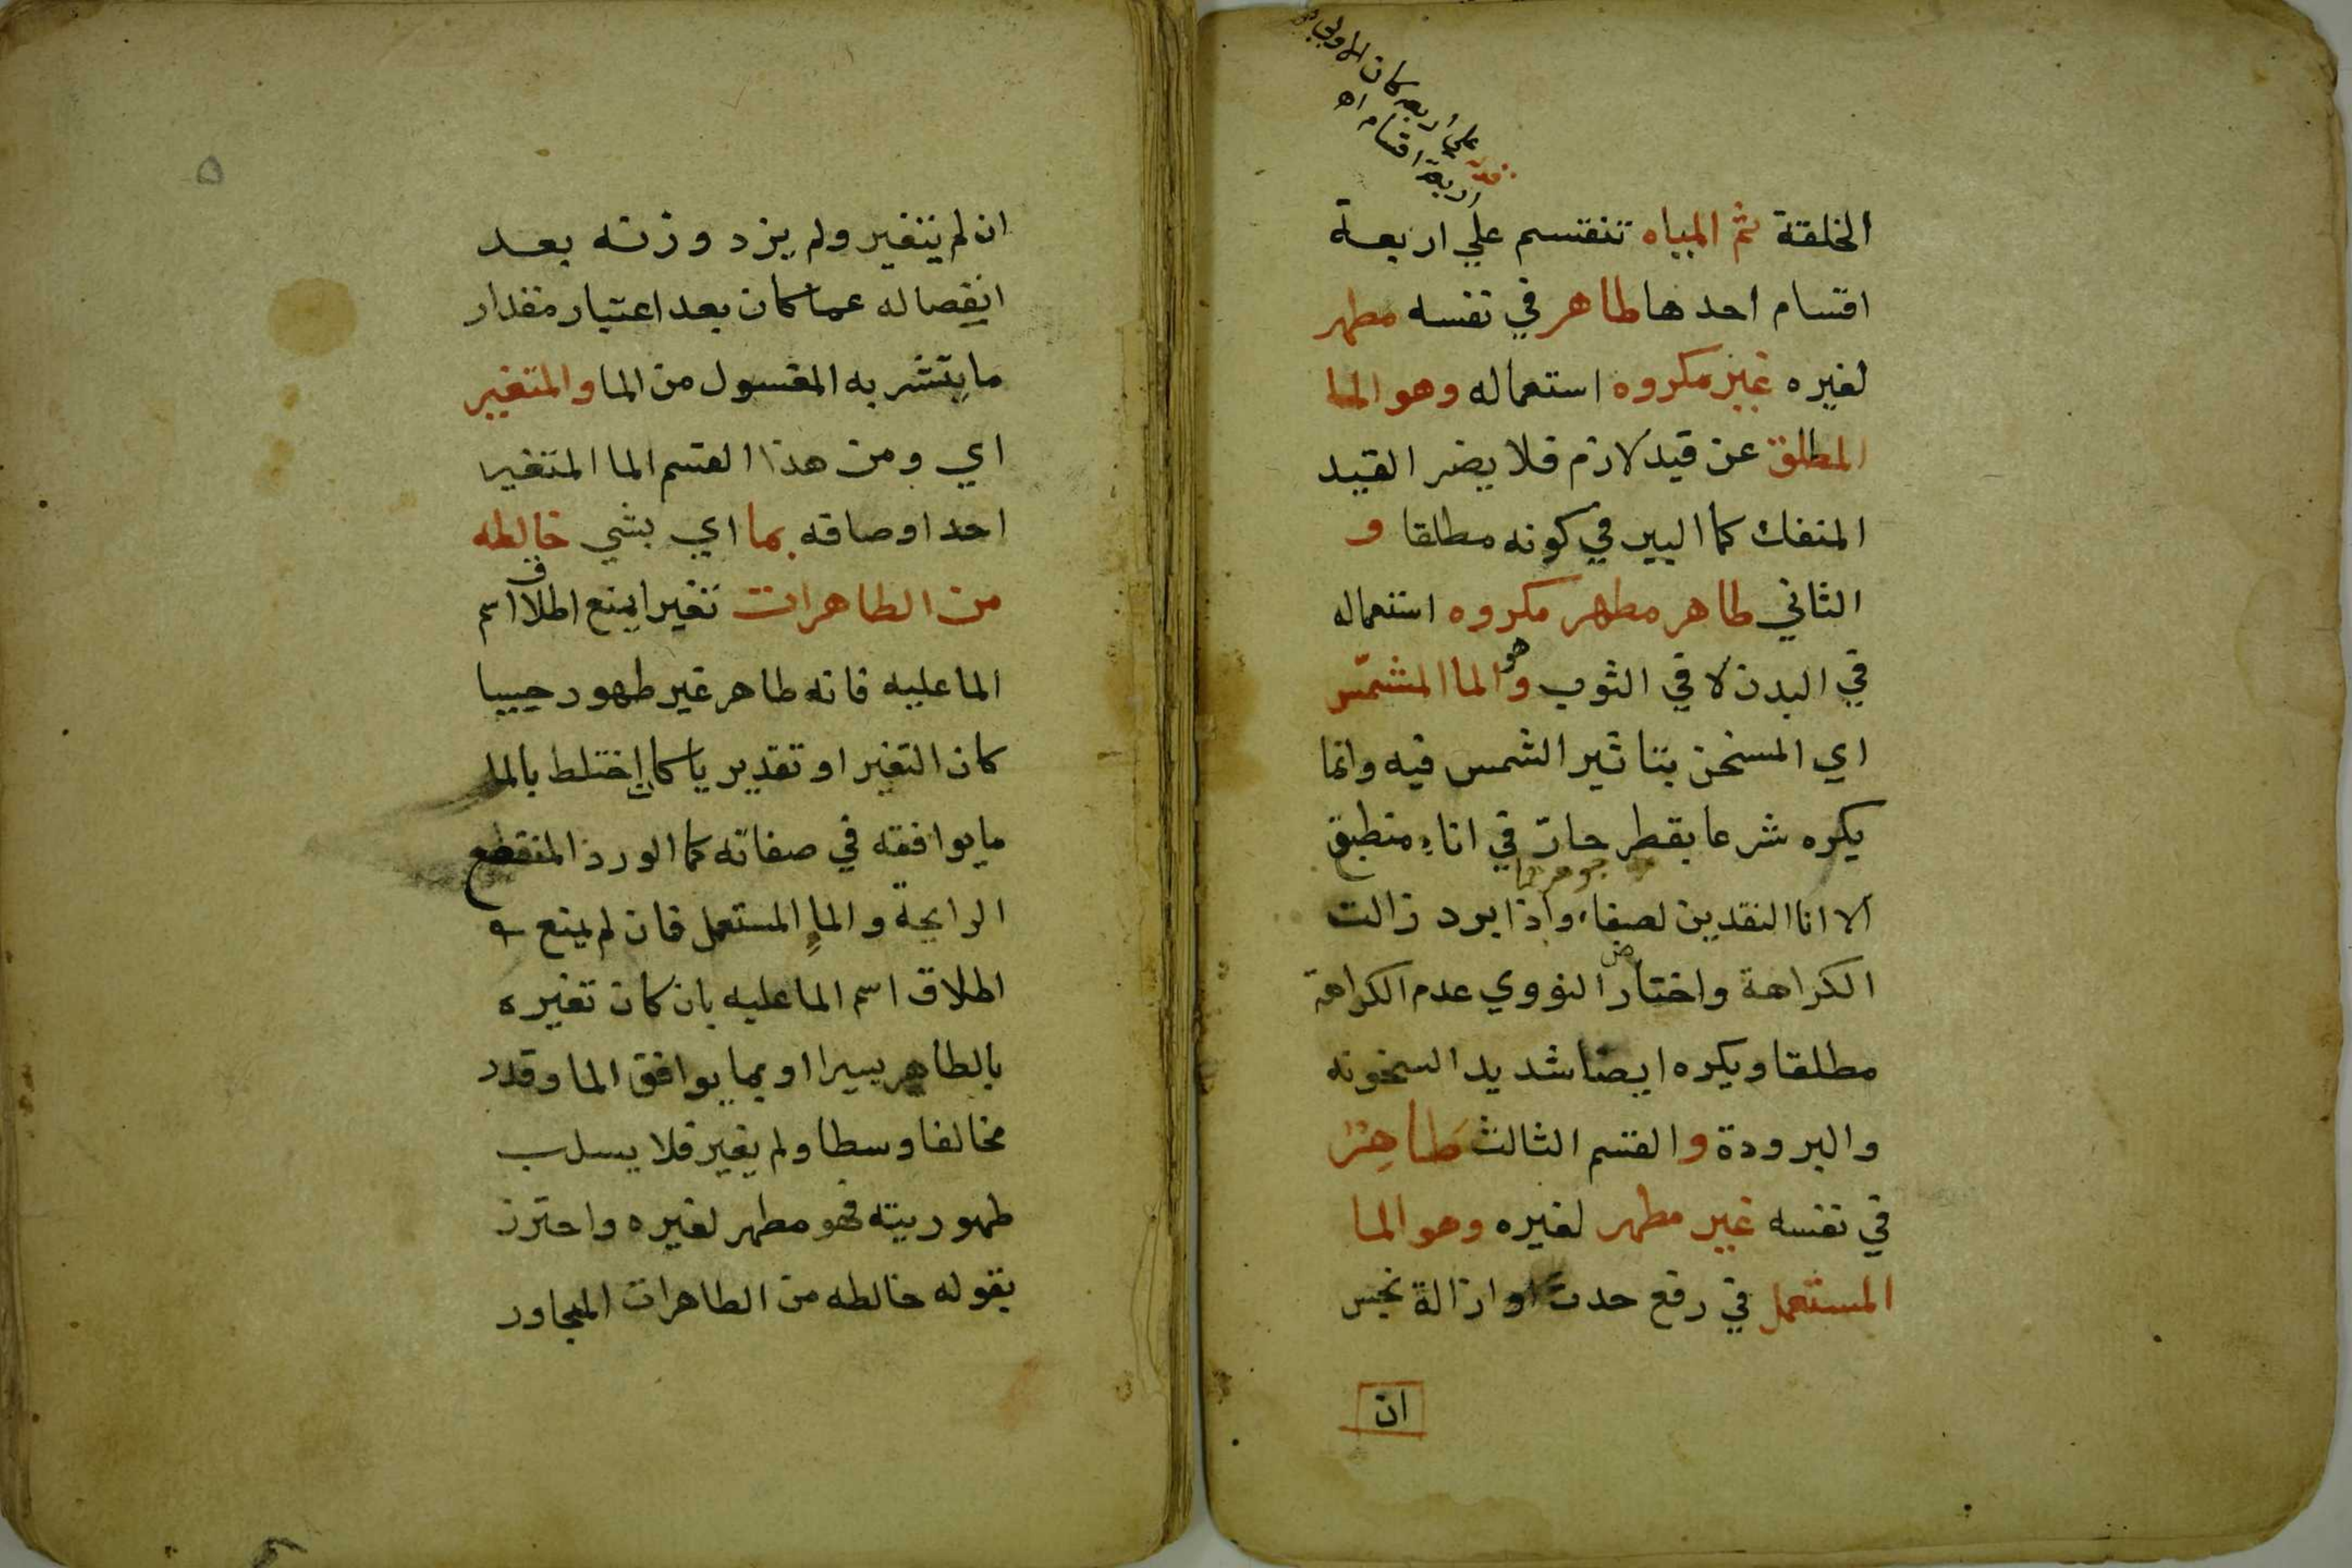 على أربعة كان الأولى
أربعة أقسام اه
الخلقة ثم المياه تنقسم علي اربعة
اقسام احدها طاهر في نفسه مطهر
لغيره غير مكروه استعماله وهو الما
المطلق عن قيد لازم فلا يضر القيد
المنفك كما البير في كونه مطلقا و
الثاني طاهر مطهر مكروه استعماله
في البدن لا في الثوب وهو الما المشمّس
اي المسخن بتاثير الشمس فيه وانما
يكره شرعا بقطر حارّ في اناء منطبق
الا انا النقدين لصفاء جوهرهما واذا برد زالت
الكراهة واختار النووي عدم الكراهة
مطلقا ويكره ايضا شديد السخونه
والبرودة والقسم الثالث طَاهِر
في نفسه غير مطهر لغيره وهو الما
المستعمل في رفع حدث او ازالة نجس
ان
٥
ان لم يتغير ولم يزد وزنه بعد
انفصاله عما كان بعد اعتبار مقدار
ما يتشربه المغسول من الما والمتغير
اي ومن هذا القسم الما المتغير
احد اوصافه بما اي بشي خالطه
من الطاهرات تغيرا يمنع اطلاق اسم
الما عليه فانه طاهر غير طهور حسيا
كان التغير او تقديريا كان اختلط بالما
ما يوافقه في صفاته كما الورد المنقطع
الرايحة والماء المستعمل فان لم يمنع
اطلاق اسم الما عليه بان كان تغيره
بالطاهر يسيرا او بما يوافق الما وقدر
مخالفا وسطا ولم يغير فلا يسلب
طهوريته فهو مطهر لغيره واحترز
بقوله خالطه من الطاهرات المجاور